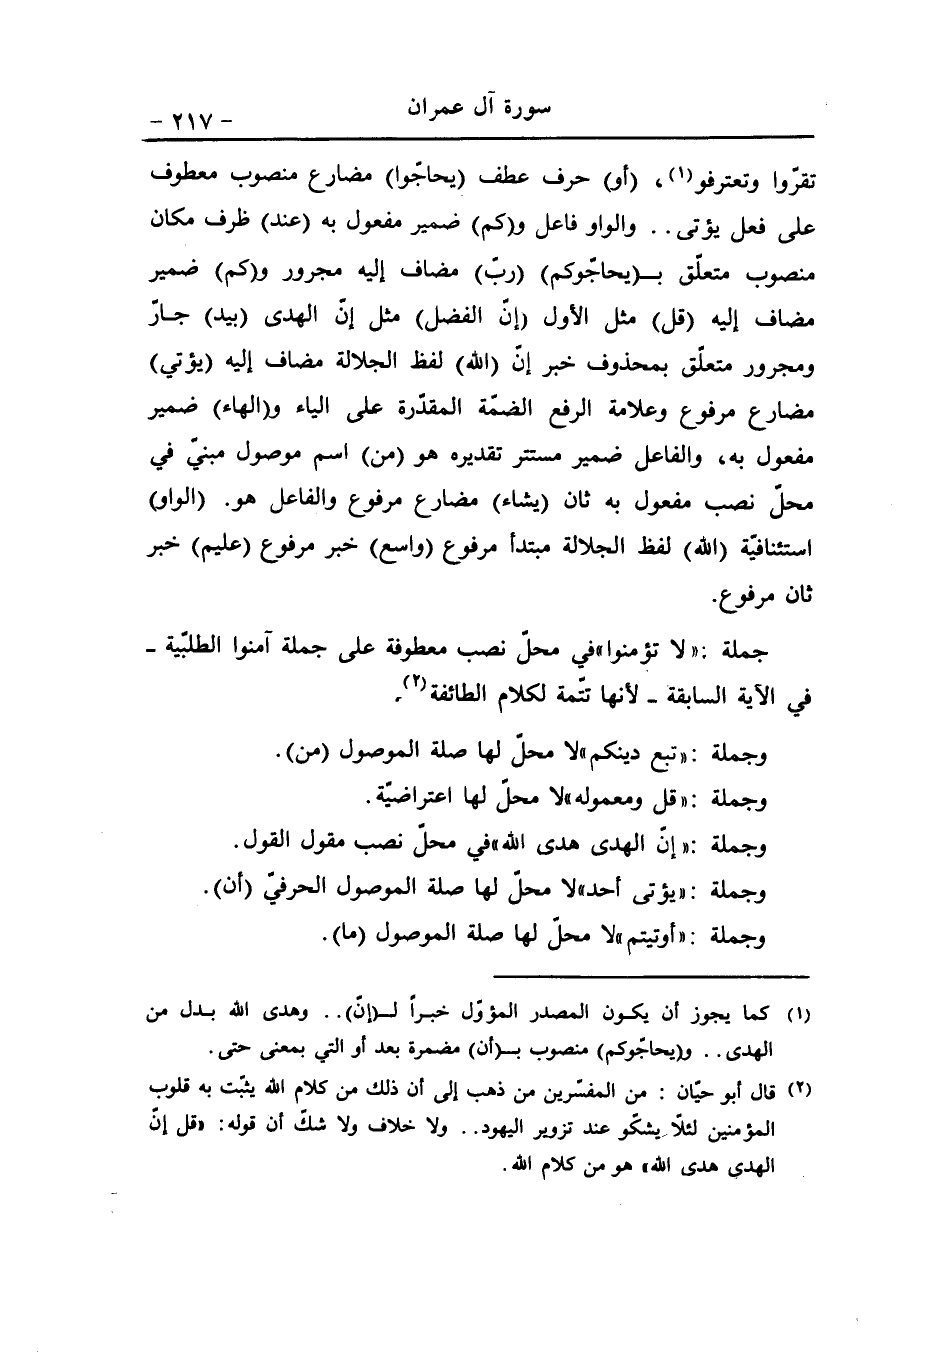 سورة آل عمران
- ٢١٧ -
تقرّوا وتعترفو(١)، (أو) حرف عطف (يحاجّوا) مضارع منصوب معطوف
على فعل يؤتى.. والواو فاعل و(كم) ضمير مفعول به (عند) ظرف مكان
منصوب متعلّق بـ(يحاجّوكم) (ربّ) مضاف إليه مجرور و(كم) ضمير
مضاف إليه (قل) مثل الأول (إنّ الفضل) مثل إنّ الهدى (بيد) جارّ
ومجرور متعلّق بمحذوف خبر إنّ (الله) لفظ الجلالة مضاف إليه (يؤتي)
مضارع مرفوع وعلامة الرفع الضمّة المقدّرة على الياء و(الهاء) ضمير
مفعول به، والفاعل ضمير مستتر تقديره هو (من) اسم موصول مبنيّ في
محلّ نصب مفعول به ثان (يشاء) مضارع مرفوع والفاعل هو. (الواو)
استئنافيّة (الله) لفظ الجلالة مبتدأ مرفوع (واسع) خبر مرفوع (عليم) خبر
ثان مرفوع.
جملة :«لا تؤمنوا»في محلّ نصب معطوفة على جملة آمنوا الطلبّية -
في الآية السابقة - لأنها تتّمة لكلام الطائفة(٢).
وجملة :«تبع دينكم»لا محلّ لها صلة الموصول (من).
وجملة :«قل ومعموله»لا محلّ لها اعتراضيّة.
وجملة :«إنّ الهدى هدى الله»في محلّ نصب مقول القول.
وجملة :«يؤتى أحد»لا محلّ لها صلة الموصول الحرفيّ (أن).
وجملة :«أوتيتم»لا محلّ لها صلة الموصول (ما).
(١) كما يجوز أن يكون المصدر المؤوّل خبراً لـ(إنّ).. وهدى الله بدل من
الهدى.. و(يحاجّوكم) منصوب بـ(أن) مضمرة بعد أو التي بمعنى حتى.
(٢) قال أبو حيّان : من المفسّرين من ذهب إلى أن ذلك من كلام الله يثبّت به قلوب
المؤمنين لئلّا يشكّو عند تزوير اليهود.. ولا خلاف ولا شكّ أن قوله: «قل إنّ
الهدى هدى الله» هو من كلام الله.